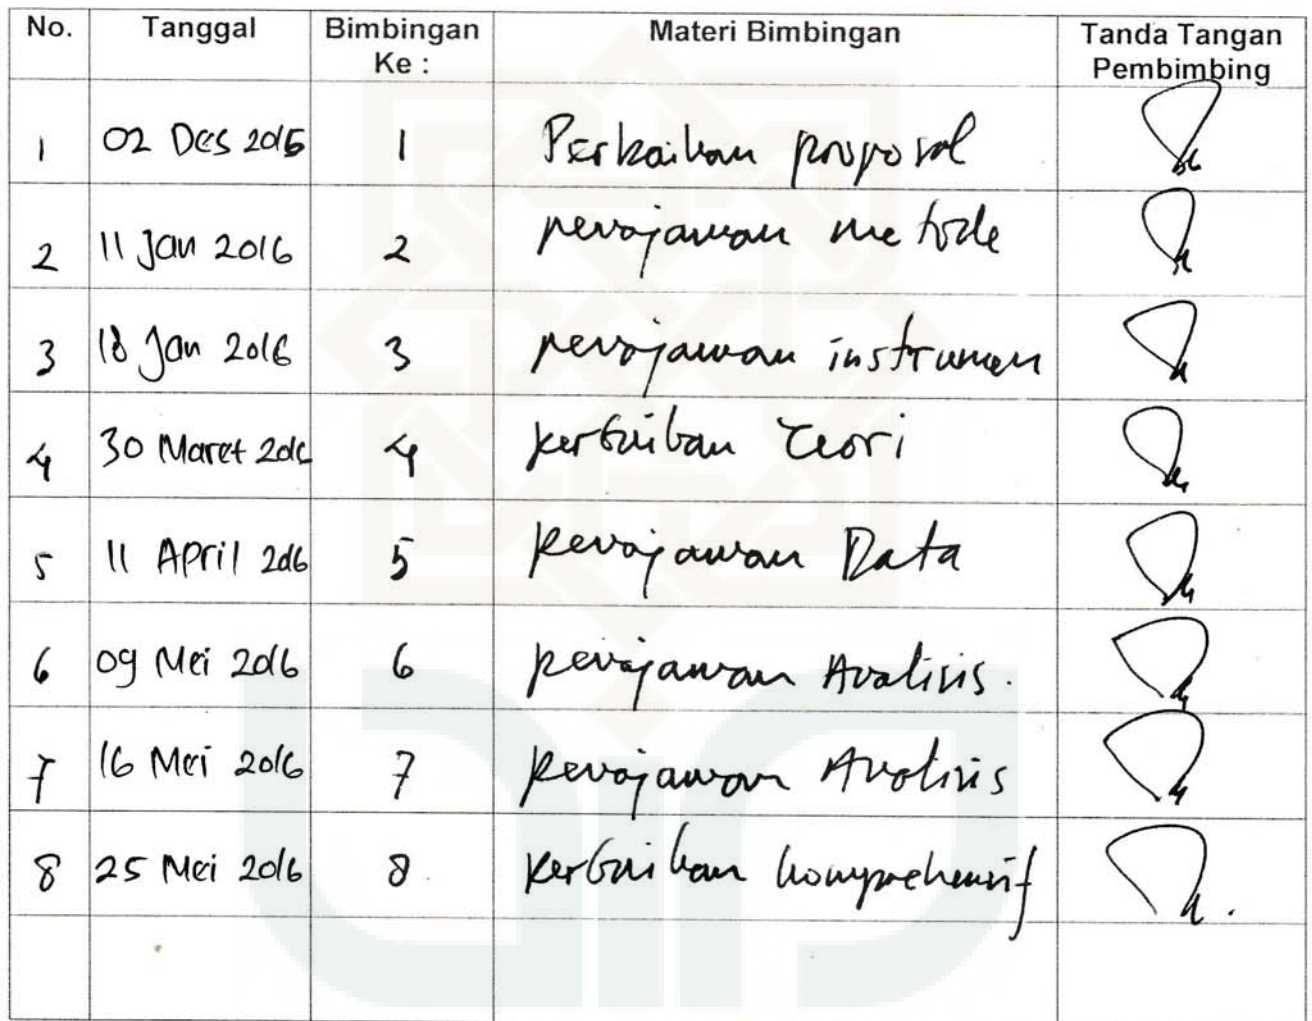 No. Tanggal Bimbingan Ke : Materi Bimbingan Tanda Tangan Pembimbing
1 02 Des 2015 1 Perbaikan proposal
2 11 Jan 2016 2 penajaman metode
3 18 Jan 2016 3 penajaman instrumen
4 30 Maret 2016 4 perbaikan Teori
5 11 April 2016 5 penajaman Data
6 09 Mei 2016 6 penajaman Analisis.
7 16 Mei 2016 7 penajaman Analisis
8 25 Mei 2016 8. perbaikan komprehensif